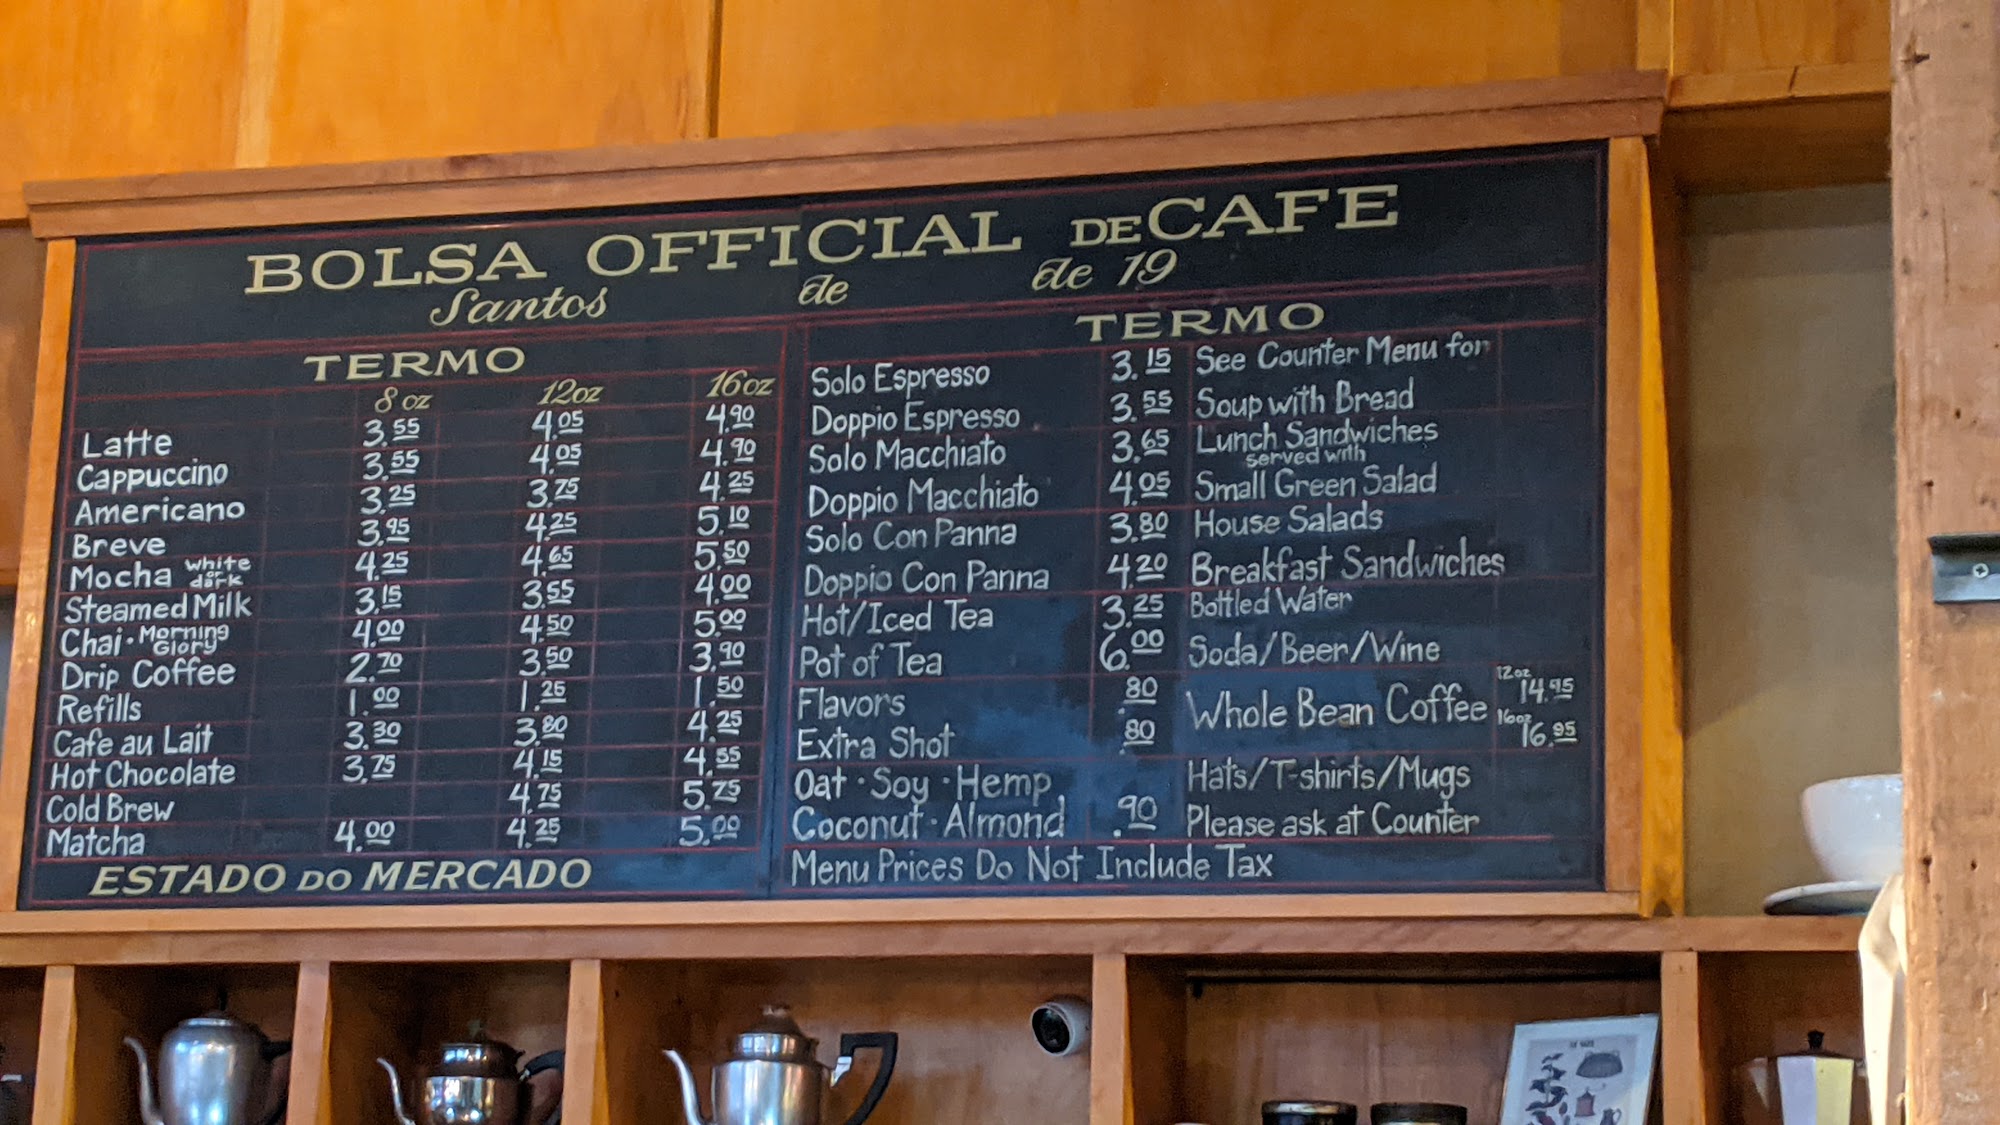 BOLSA OFFICIAL DE CAFE
Santos de de 19
TERMO
8 oz 12oz 16oz
Latte 3.55 4.05 4.90
Cappuccino 3.55 4.05 4.90
Americano 3.25 3.75 4.25
Breve 3.95 4.25 5.10
Mocha white or dark 4.25 4.65 5.50
Steamed Milk 3.15 3.55 4.00
Chai · Morning Glory 4.00 4.50 5.00
Drip Coffee 2.70 3.50 3.90
Refills 1.00 1.25 1.50
Cafe au Lait 3.30 3.80 4.25
Hot Chocolate 3.75 4.15 4.55
Cold Brew 4.75 5.75
Matcha 4.00 4.25 5.00
ESTADO DO MERCADO
TERMO
Solo Espresso 3.15
Doppio Espresso 3.55
Solo Macchiato 3.65
Doppio Macchiato 4.05
Solo Con Panna 3.80
Doppio Con Panna 4.20
Hot/Iced Tea 3.25
Pot of Tea 6.00
Flavors .80
Extra Shot .80
Oat · Soy · Hemp
Coconut · Almond .90
See Counter Menu for
Soup with Bread
Lunch Sandwiches
served with
Small Green Salad
House Salads
Breakfast Sandwiches
Bottled Water
Soda/Beer/Wine
Whole Bean Coffee 12oz 14.95
16oz 16.95
Hats/T-shirts/Mugs
Please ask at Counter
Menu Prices Do Not Include Tax